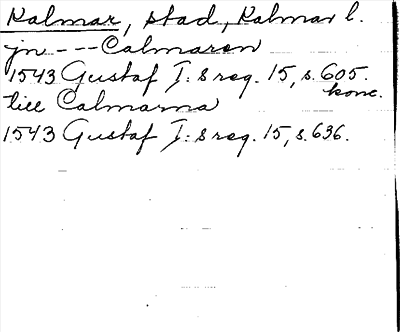 Kalmar, stad, Kalmar l.
jn --- Calmaren
1543 Gustaf I:s reg. 15, s. 605.
konc.
till Calmarna
1543 Gustaf I:s reg. 15, s. 636.